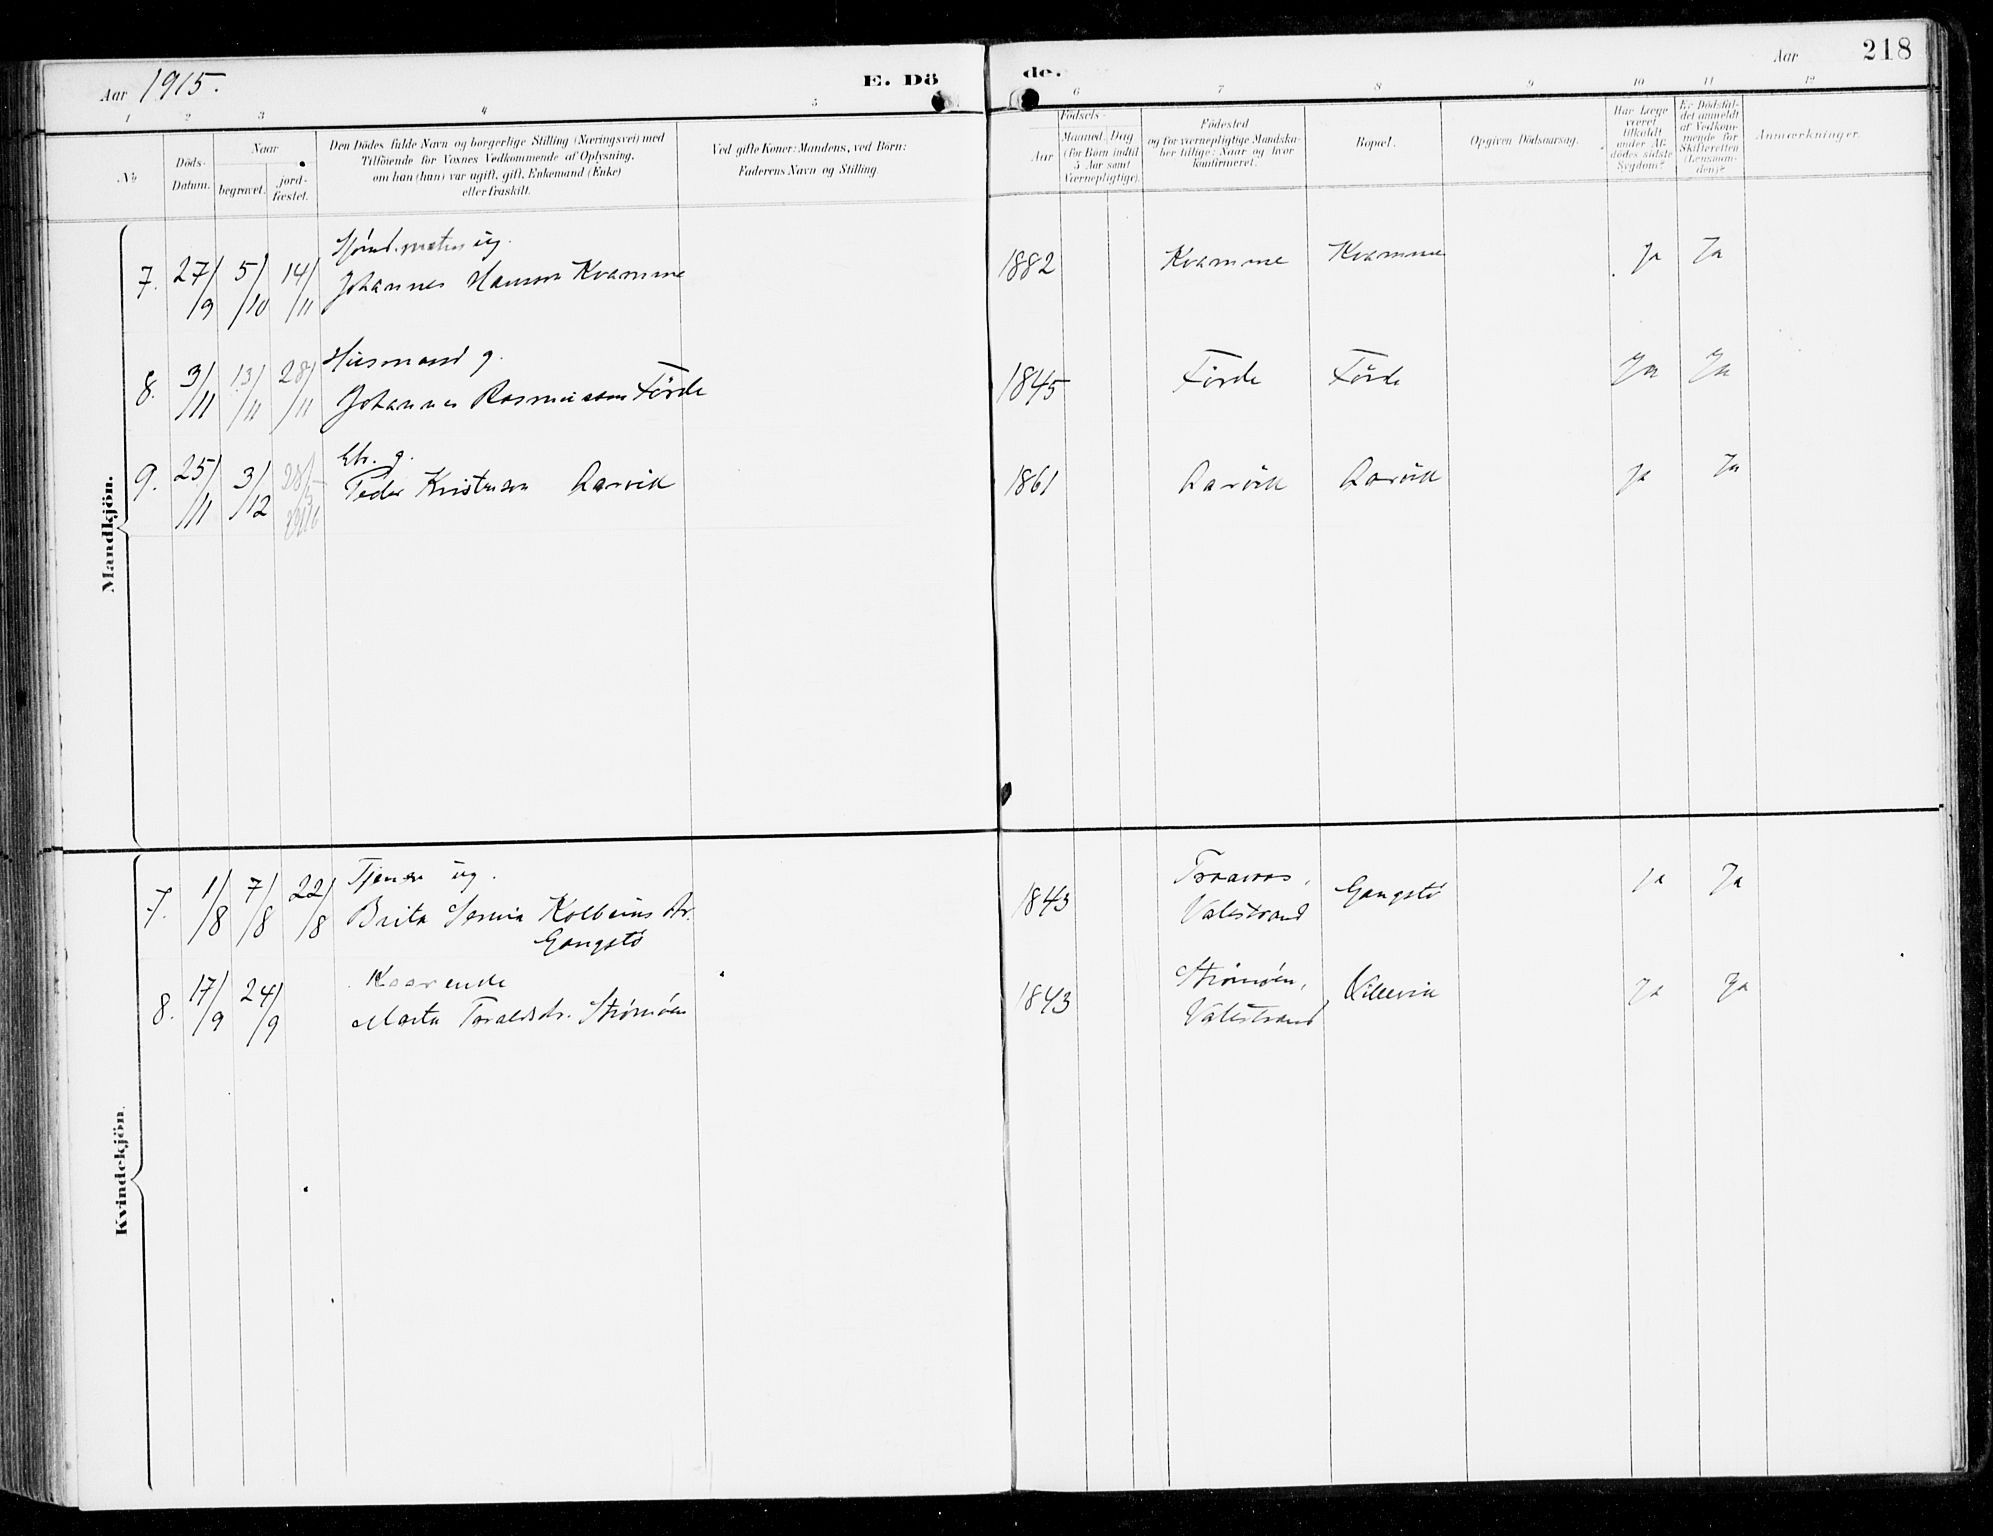 Aar 1915.
E. Dö
de.
Aar
218
1 2 3 4 5 6 7 8 9 10 11 12
No
Döds-
Datum.
Naar
begravet.
jord-
fæstet.
Den Dödes fulde Navn og borgerlige Stilling (Næringsvei) med
Tilföiende for Voxnes Vedkommende af Oplysning,
om han (hun) var ugift, gift, Enkemand (Enke)
eller fraskilt.
Ved gifte Koner: Mandens, ved Börn:
Faderens Navn og Stilling.
Födsels-
Aar
Maaned. Dag
(for Börn indtil
5 Aar samt
Værnepligtige).
Födested
og for værnepligtige Mandska-
ber tillige: Naar og hvor
konfirmeret.
Bopæl.
Opgiven Dödsaarsag.
Har Læge
været
tilkaldt
under Af-
dödes sidste
Sygdom?
Er Dödsfal-
det anmeldt
af Vedkom-
mende for
Skifteretten
(Lensman-
den)?
Anmærkninger.
Mandkjön.
ug.
7. 27/9 5/10 14/11 Johannes Hanson Kvamme 1882 Kvamme Kvamme Ja Ja
Husmand g.
8. 3/11 13/11 28/11 Johannes Rasmussom Förde 1845 Förde Förde Ja Ja
g.
9. 25/11 3/12 Peder Kristenson 1861 Ja Ja
Kvindekjön.
Tjener ug.
7. 1/8 7/8 22/8 Brita Kolbeinsdtr. 1843 Valestrand Gangstö Ja Ja
Gangstö
Kaarende
8. 17/9 24/9 Marta Toraldsdtr. Strömöen 1843 Strömöen, Ja Ja
Valestrand